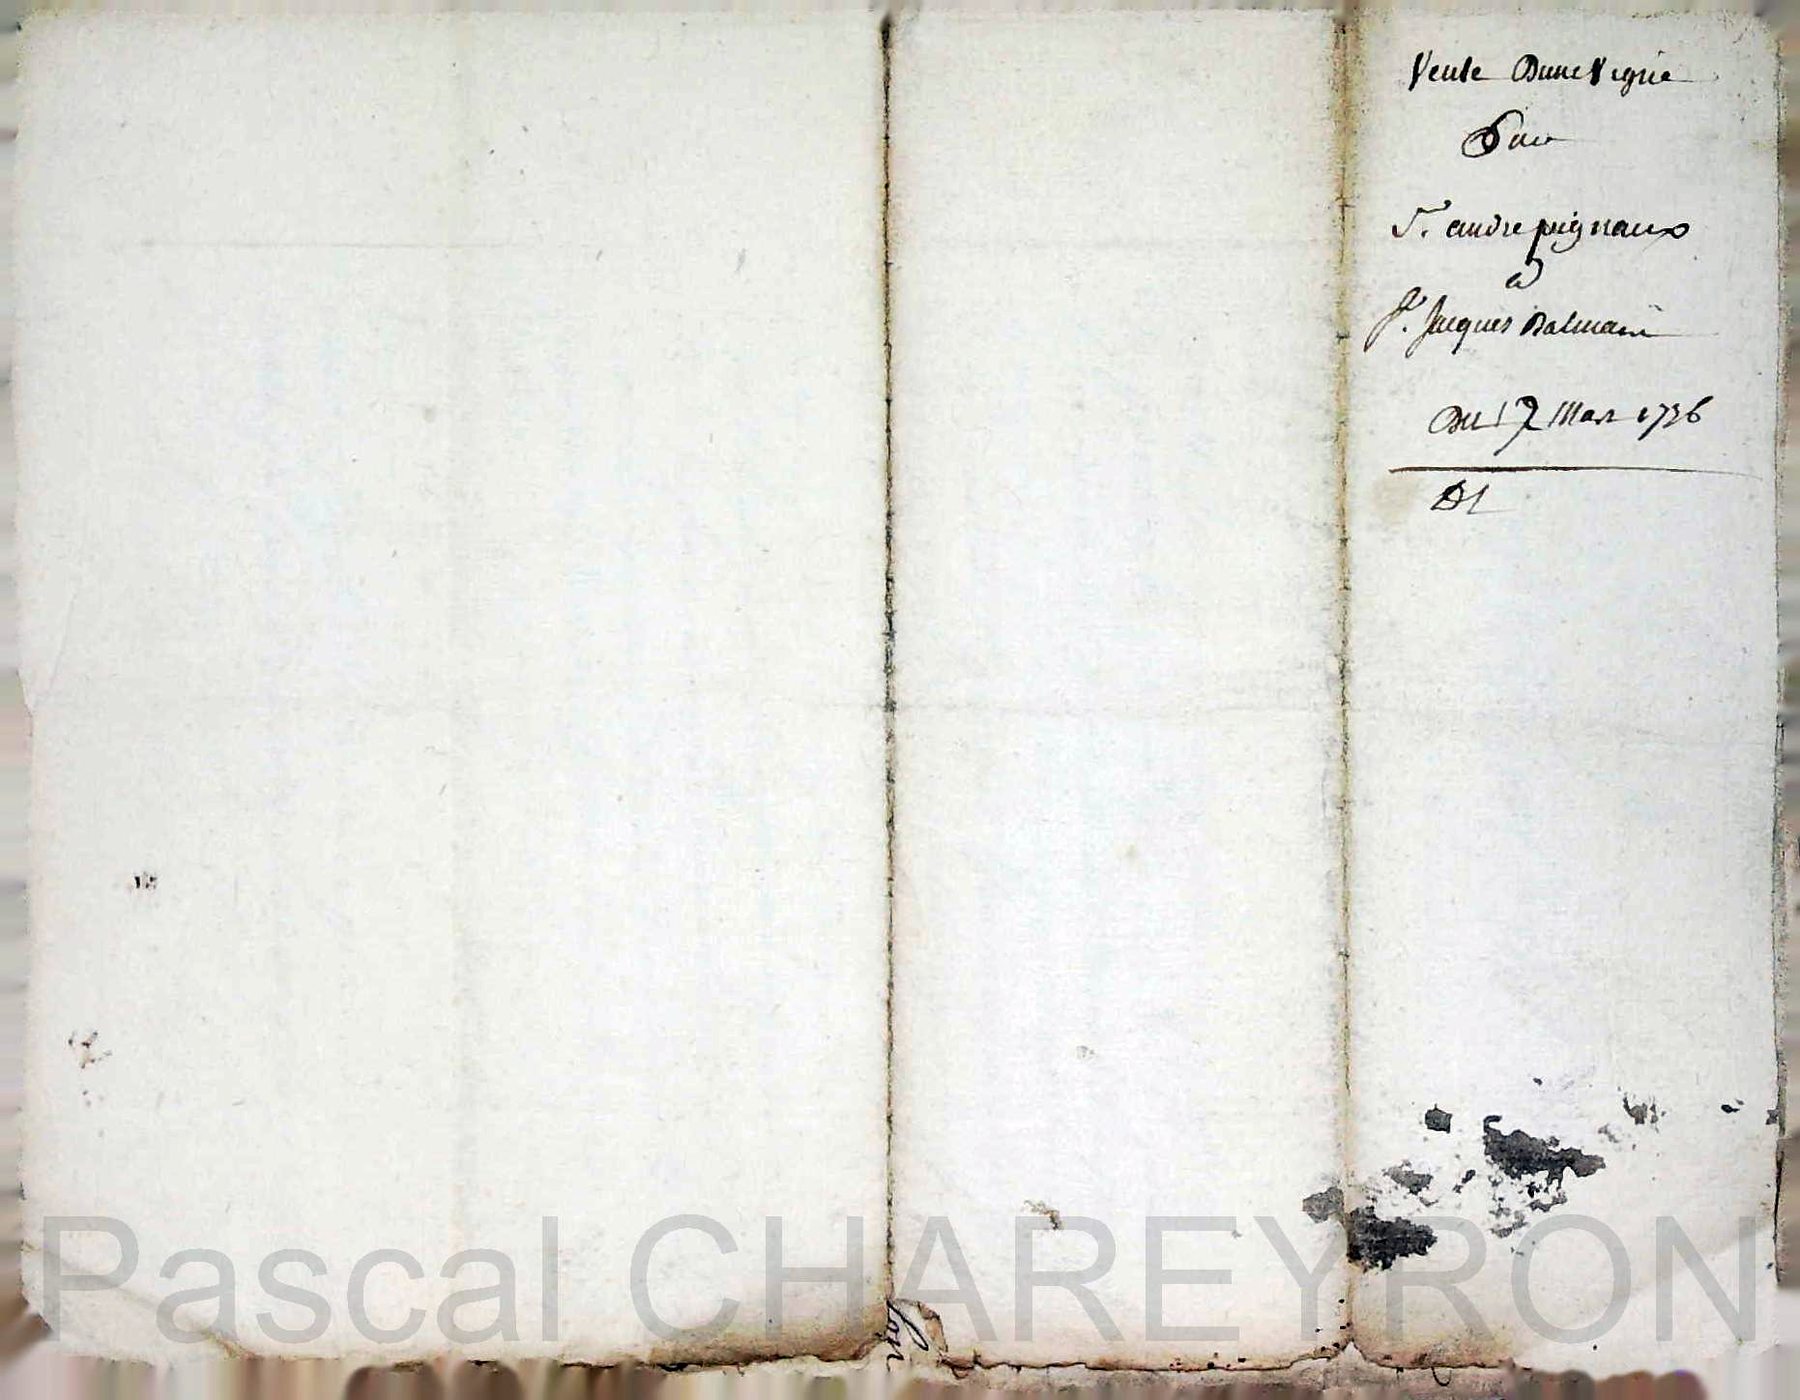 Vente Dune Vigne
Par
Sr. andre pignaux
a
Sr. Jacques Dalmain
Du 17 Mars 1736
Pascal CHAREYRON